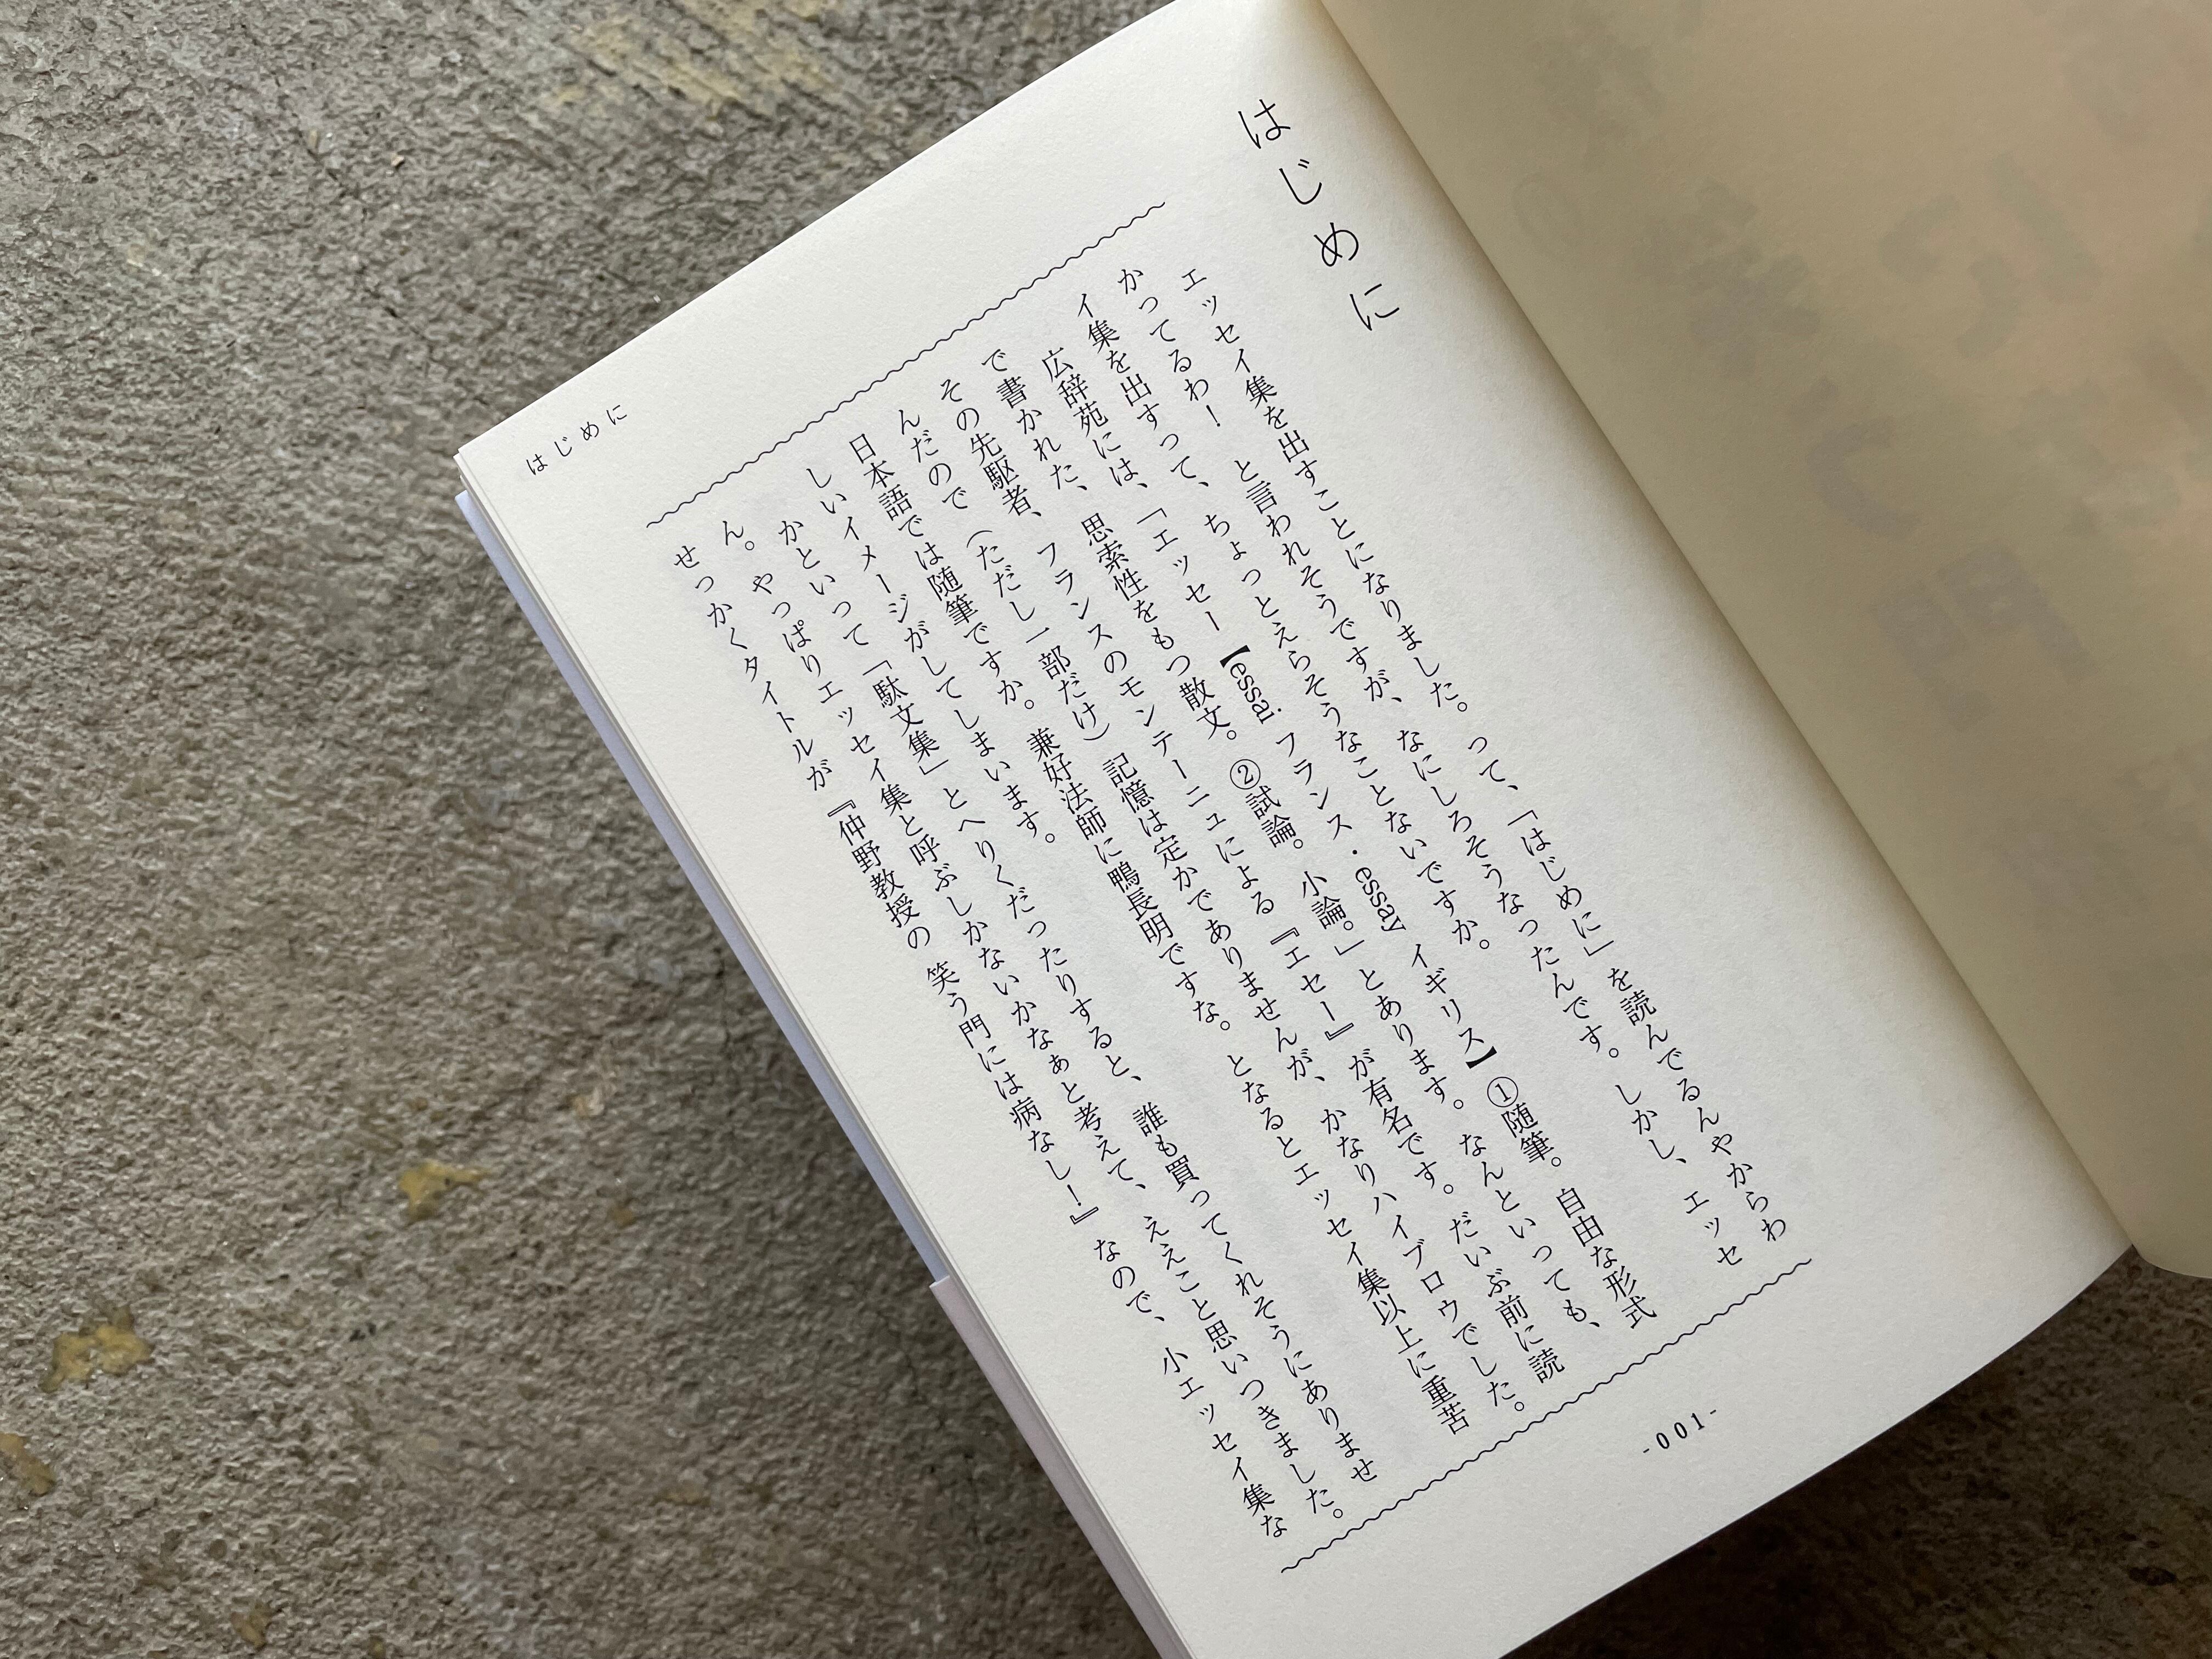 はじめに
エッセイ集を出すことになりました。って、「はじめに」を読んでるんやからわ
かってるわ！　と言われそうですが、なにしろそうなったんです。しかし、エッセ
イ集を出すって、ちょっとえらそうなことないですか。
広辞苑には、「エッセー【essai フランス・essay イギリス】①随筆。自由な形式
で書かれた、思索性をもつ散文。②試論。小論。」とあります。なんといっても、
その先駆者、フランスのモンテーニュによる『エセー』が有名です。だいぶ前に読
んだので（ただし一部だけ）記憶は定かでありませんが、かなりハイブロウでした。
日本語では随筆ですか。兼好法師に鴨長明ですな。となるとエッセイ集以上に重苦
しいイメージがしてしまいます。
かといって「駄文集」とへりくだったりすると、誰も買ってくれそうにありませ
ん。やっぱりエッセイ集と呼ぶしかないかなぁと考えて、ええこと思いつきました。
せっかくタイトルが『仲野教授の 笑う門には病なし！』なので、小エッセイ集な
はじめに
-001-